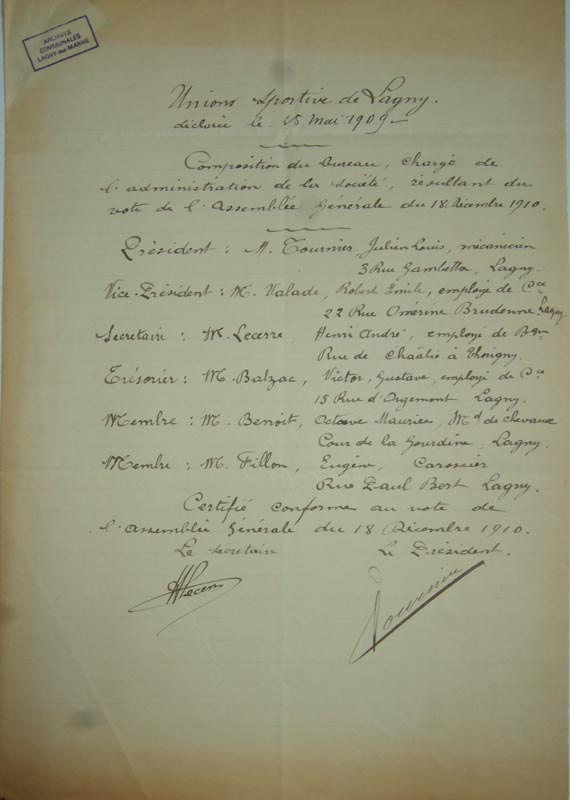 ARCHIVES
COMMUNALES
LAGNY-sur-MARNE
Union Sportive de Lagny.
déclarée le 25 Mai 1909
Composition du bureau, chargé de
l'administration de la Société, résultant du
vote de l'Assemblée Générale du 18 Décembre 1910.
Président : M. Tournier, Julien Louis, mécanicien
3 Rue Gambetta, Lagny.
Vice-Président : M. Valade, Robert Emile, employé de Cce
22 Rue Brudenne Lagny
Secretaire : M. Lecerre, Henri André, employé de Bque
Rue de Chaâlis à Thorigny.
Trésorier : M. Balzac, Victor, Gustave, employé de Cce
15 Rue d'Orgemont Lagny.
Membre : M. Benoit, Octave Maurice, Md de chevaux
Cour de la Gourdine, Lagny.
Membre : M. Fillon, Eugène, Carossier
Rue Paul Bert Lagny.
Certifié conforme au vote de
l'Assemblée Générale du 18 Décembre 1910.
Le secretaire Le Président.
Tournier